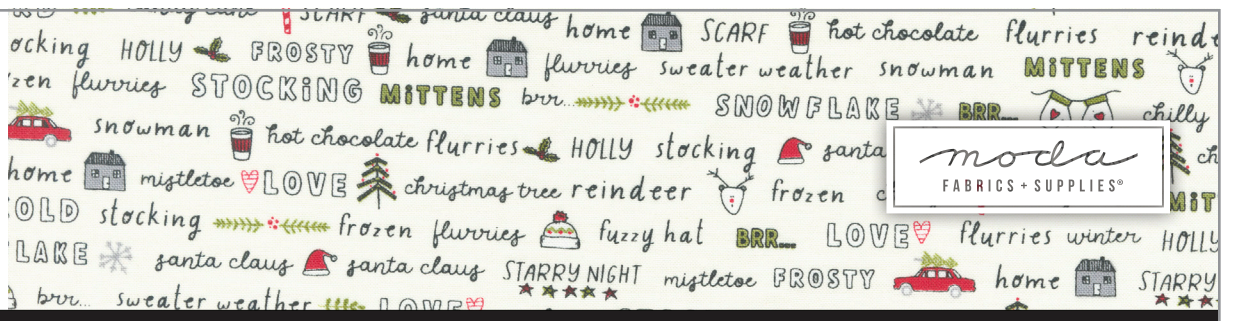 SCARF santa claus home SCARF hot chocolate flurries reinde
ocking HOLLY FROSTY home flurries sweater weather snowman MiTTENS
zen flurries STOCKiNG MiTTENS brr... SNOWFLAKE BRR... chilly
snowman hot chocolate flurries HOLLY stocking santa ch
home mistletoe LOVE christmas tree reindeer frozen c MiT
OLD stocking frozen flurries fuzzy hat BRR... LOVE flurries winter HOLLY
LAKE santa claus santa claus STARRY NIGHT mistletoe FROSTY home STARRY
brr... sweater weather LOVE
moda
FABRICS + SUPPLIES®